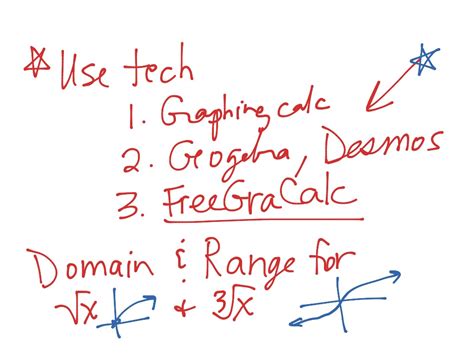 ☆ Use tech
1. Graphing calc
2. Geogebra, Desmos
3. FreeGraCalc
Domain & Range for
√x & ∛x